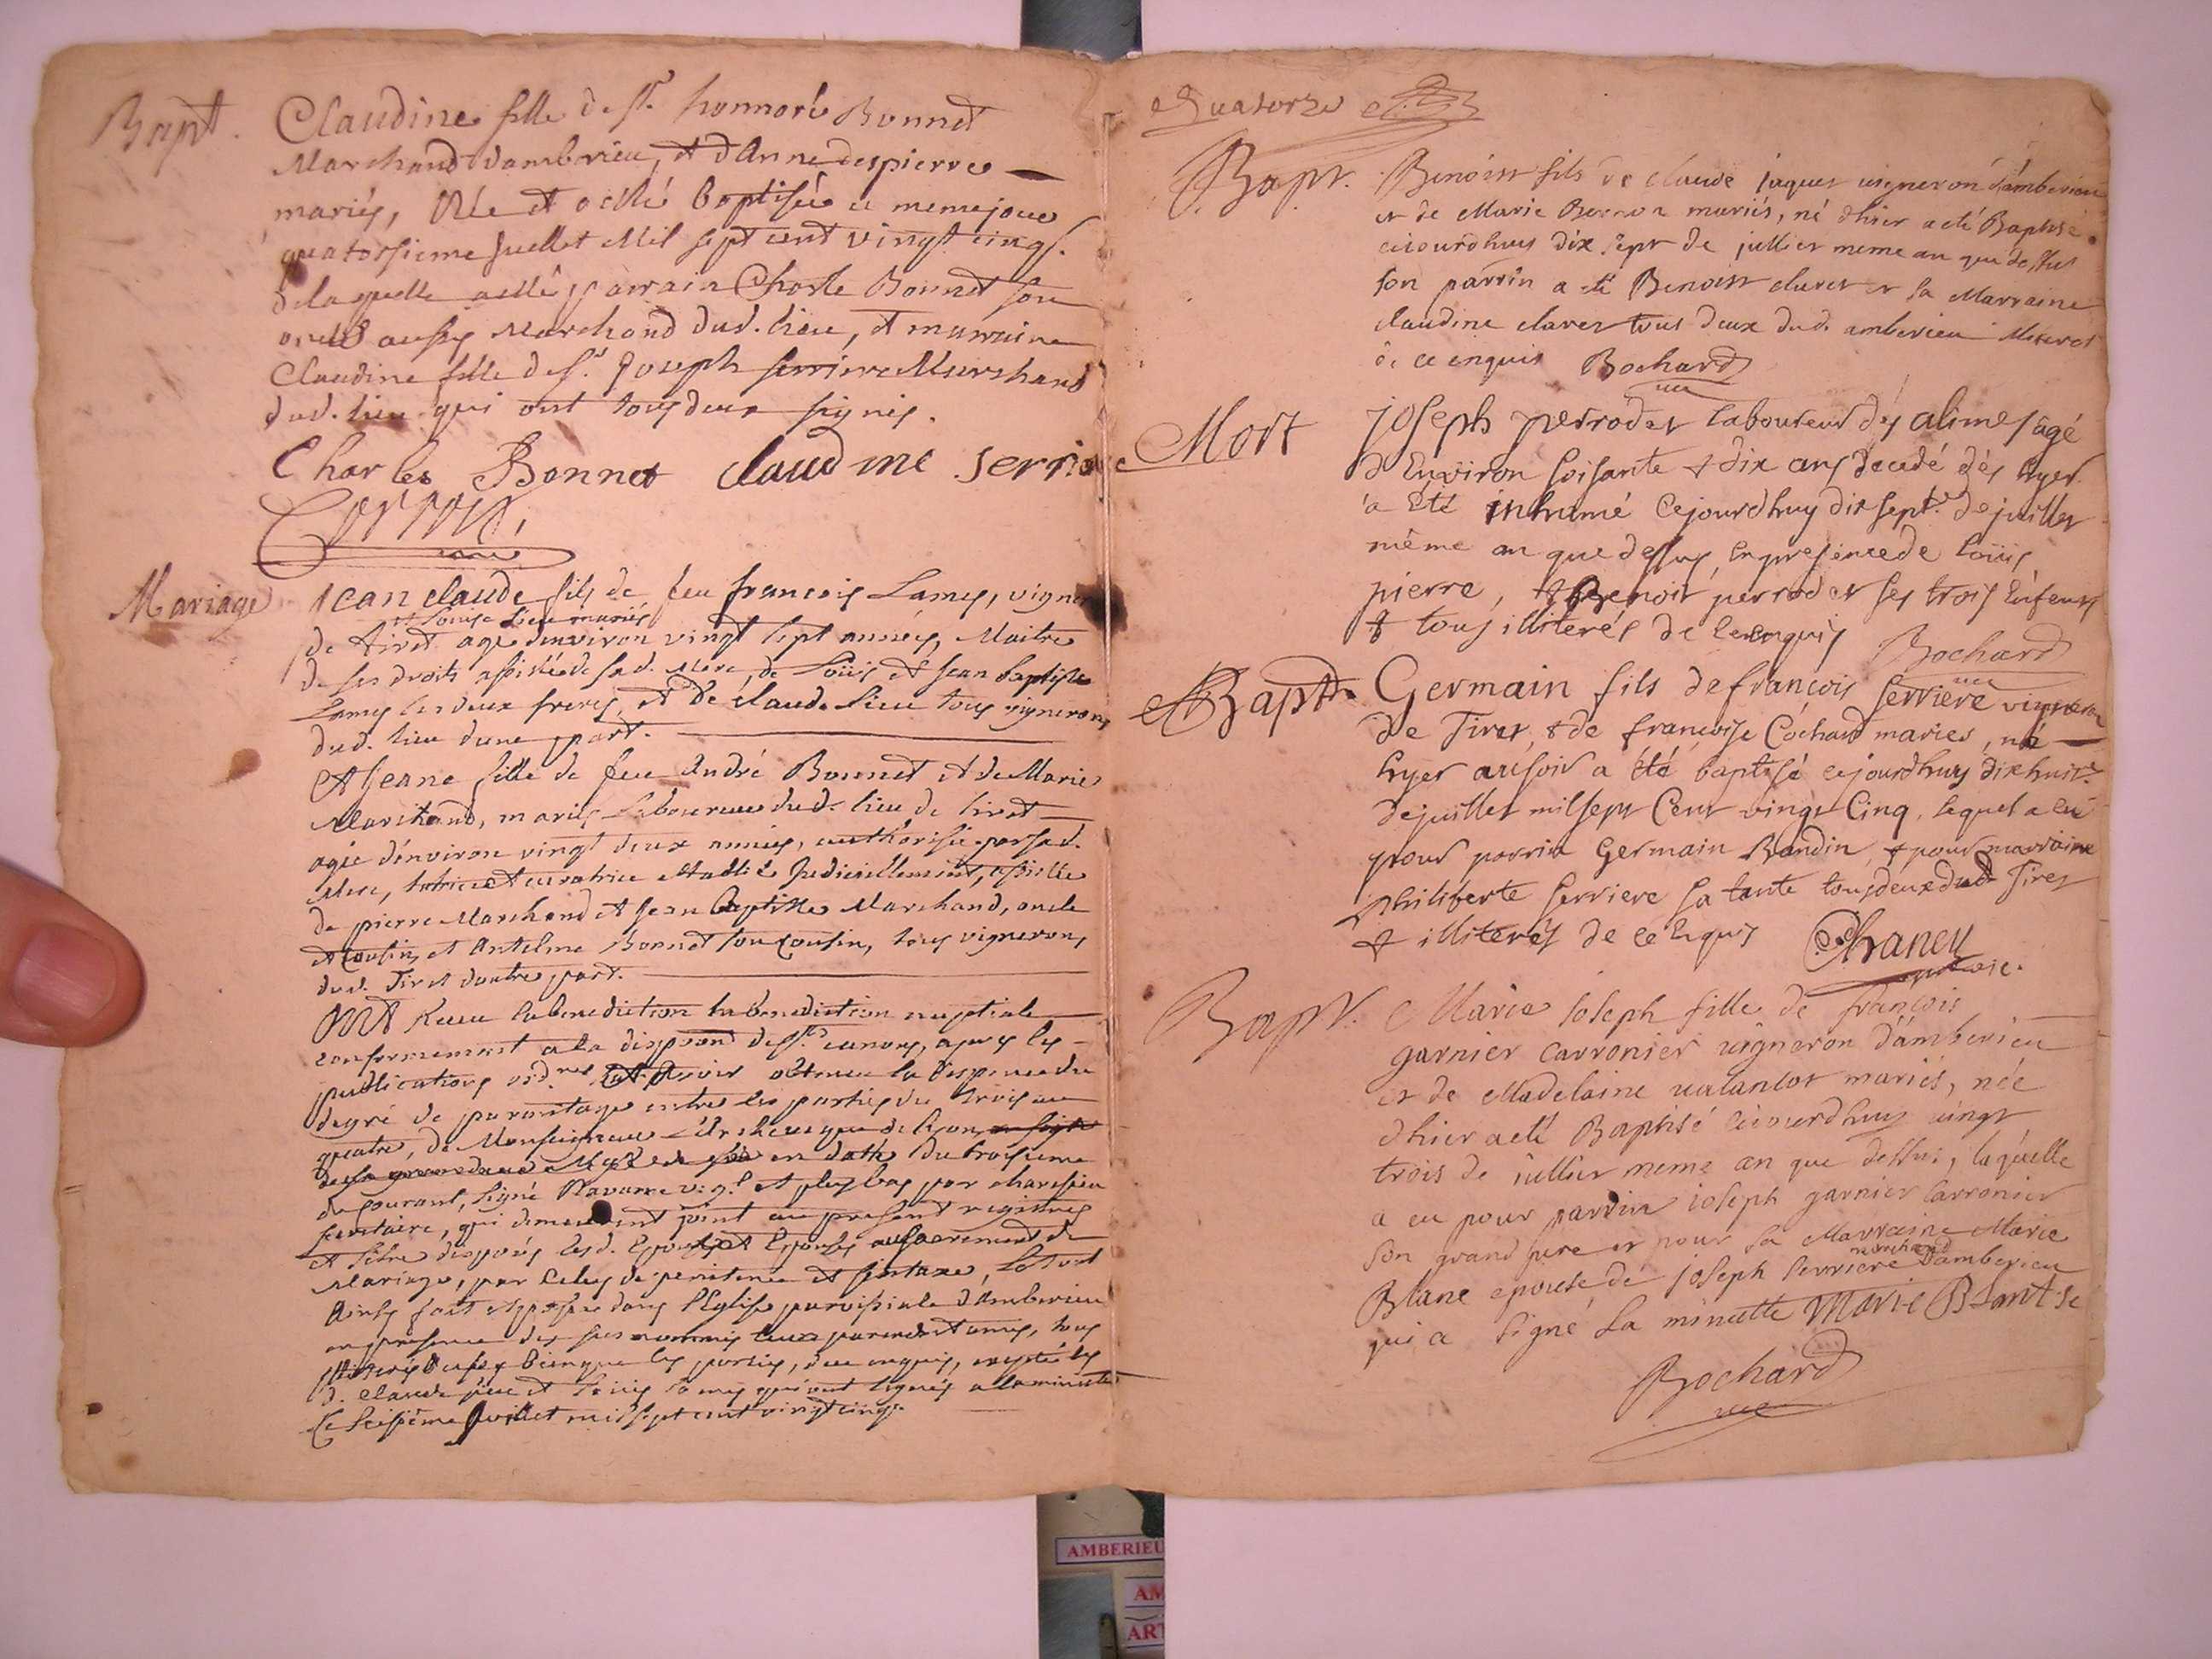 Bapt.
Claudine fille de Sr. honnoré Bonnet
Marchand dambrieu, et d'Anne despierre
mariés, Née et a esté baptisée ce meme jour
quatorsieme Juellet Mil sept cent vingt cinq.
de laquelle a esté parrain Charle Bonnet son
oncle aussy Marchand dud. lieu, et marraine
Claudine fille de Sr. Joseph serriere Marchand
dud. lieu qui ont tous deux signés.
Charles Bonnet claudine serriere
Mariage
Jean claude fils de feu francois Lamy, vigneron
et Louise Sieu mariés
de tiret agé denviron vingt sept années, Maitre
de ses droits assistée de sad. Mere, de Loüis et Jean baptiste
Lamy ses deux freres, et de claude Sieu tous vignerons
dud. lieu dune part.
Et Jeane fille de feu André Bonnet et de Marie
Marchand, mariés Laboureur dud. lieu de tiret
agée d'environ vingt deux années, authorisée par sad.
Mere, tutrice et curatrice establie Judiciellement, assistée
de pierre Marchand et Jean Baptiste Marchand, oncle
et Cousin, et Antelme Bonnet son Cousin, tous vignerons
dud. Tiret dautre part.
Ont Receu la benediction la benediction nuptiale
conformement a la dispoon des Sts. canons, apres les
publications ordres et avoir obtenu la dispence du
degré de parentage entre les parties du trois au
quatre, de Monseigneur L'Archeveque de Lyon
en datte du troisieme
du courant, signé Navarre vic. gl. et plus bas par
secretaire, qui demeurent joint au present registre
et s'être disposés lesd. Epoux et Epouse au sacrement de
Mariage, par celuy de penitence et , Le tout
Ainsy fait et passé dans l'Eglise paroissiale dAmberieu
en presence des sus nommés leurs parens et amis, tous
illiterés aussy bienque les parties, de ce enquis, excepté les
d. Claude Sieu et Loüis Lamy qui ont signés a la minute
Ce seisième Juillet mil sept cent vingt cinq.
Quatorze
Bapt.
Benoist fils de claude jaquet vigneron d'amberieu
et de Marie Bernon mariés, né dhier a eté Baptisé
cejourdhuy dix sept de jullier meme an que dessus
son parrin a eté Benoist claret et sa Marraine
claudine claret tous deux dud. amberieu illiterés
de ce enquis Bochard
vic
Mort
Joseph perrodet laboureur des alimes agé
d'Environ soisante & dix ans decedé dés hyer
a Eté inhumé Cejourdhuy dix sept.e de juillet
même an que dessus, en presence de Loüis,
pierre, & Benoit perrodet ses trois Enfens
& tous illiterés de ce enquis Bochard
vic
Bapte
Germain fils de françois serriere vigneron
de Tiret, & de françoise Cochard mariés, né
hyer au soir a été baptisé cejourdhuy dixhuit.e
de juillet mil sept Cent vingt Cinq, lequel a eu
pour parrin Germain Bandin, & pour marraine
philiberte serriere sa tante tous deux dud Tiret
& illiterés de ce Enquis Chaney
Bapt.
Marie Joseph fille de françois
garnier carronier vigneron d'amberieu
et de Madelaine valanlot mariés, née
dhier a eté Baptisé cejourdhuy vingt
trois de jullier meme an que dessus, laquelle
a eu pour pardin joseph garnier Carronier
son grand pere et pour sa Marraine Marie
marchand
Blanc epouse de joseph serriere d'amberieu
qui a signé la minutte Marie Blant se
Bochard
vic
AMBERIEU
AM
ART